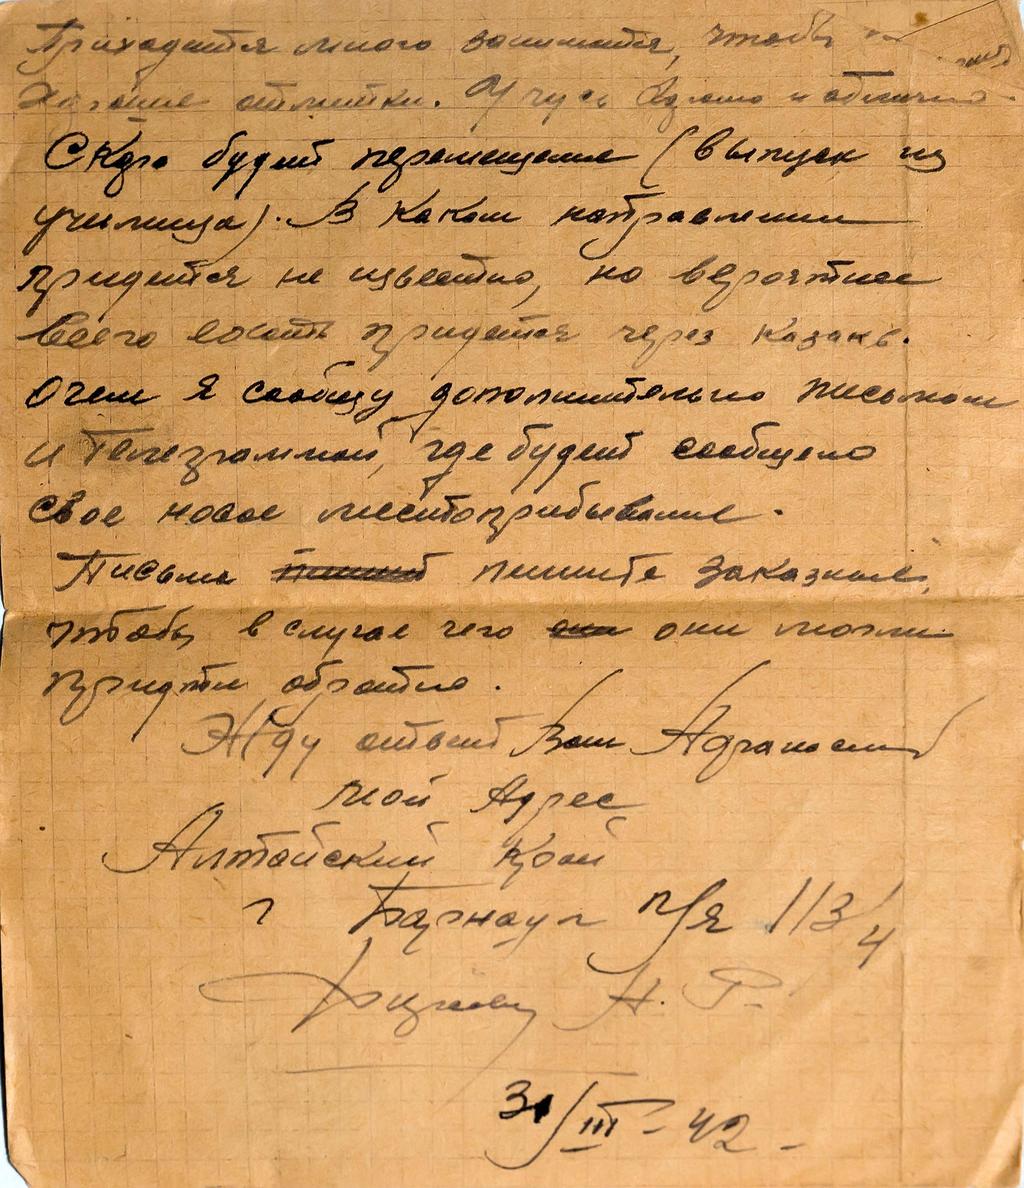 Приходится много заниматся, чтобы
хорошие отметки. Учусь хорошо и отлично.
Скоро будет перемещение (выпуск из
училища). В каком направлении
придется не известно, но вероятнее
всего ехать придется через Казань.
Очем я сообщу дополнительно письмом
и телеграммой, где будет сообщено
свое новое местоприбывание.
Письма пишите заказные,
чтобы в случае чего они могли
придти обратно.
Жду ответ Ваш
мой Адрес
Алтайский край
г Барнаул п/я 113/4
Н. Р.
31/III - 42 -